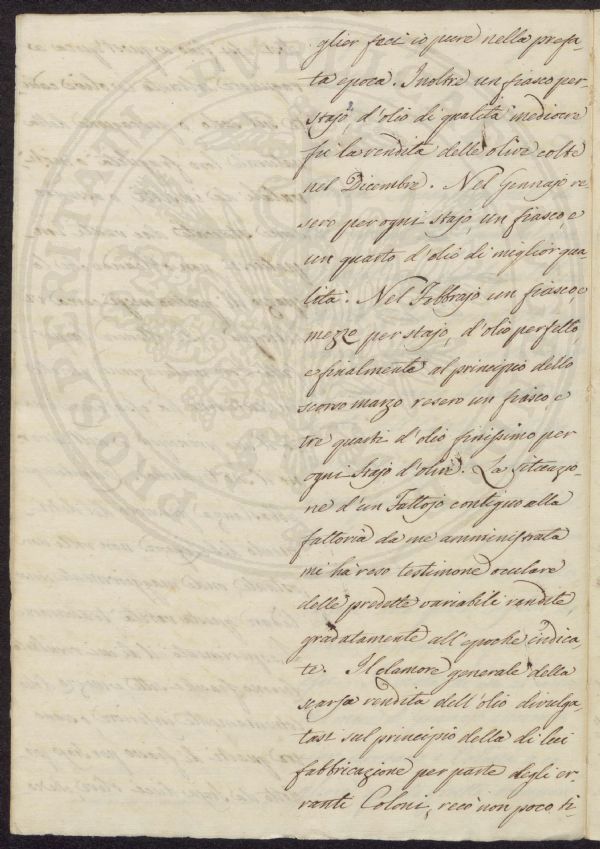 glier feci io pure nella prefa-
ta epoca. Inoltre un fiasco per
Stajo, d'olio di qualità mediocre
fu la rendita delle olive colte
nel Dicembre. Nel Gennajo re-
sero per ogni Stajo, un fiasco, e
un quarto d'olio di miglior qua-
lità. Nel Febbrajo un fiasco, e
mezzo per stajo, d'olio perfetto
e finalmente al principio dello
scorso marzo resero un fiasco, e
tre quarti d'olio finissimo per
ogni Stajo d'olive. La situazio-
ne d'un Fattojo contiguo alla
fattoria da me amministrata
mi ha reso testimone oculare
delle predette variabili rendite
gradatamente all'epoche indica-
te. Il clamore generale della
scarsa rendita dell'olio divulga-
tasi sul principio della di lui
fabbricazione per parte degli er-
ranti Coloni, recò non poco ti-
PROSPERITATI PUBLICAE